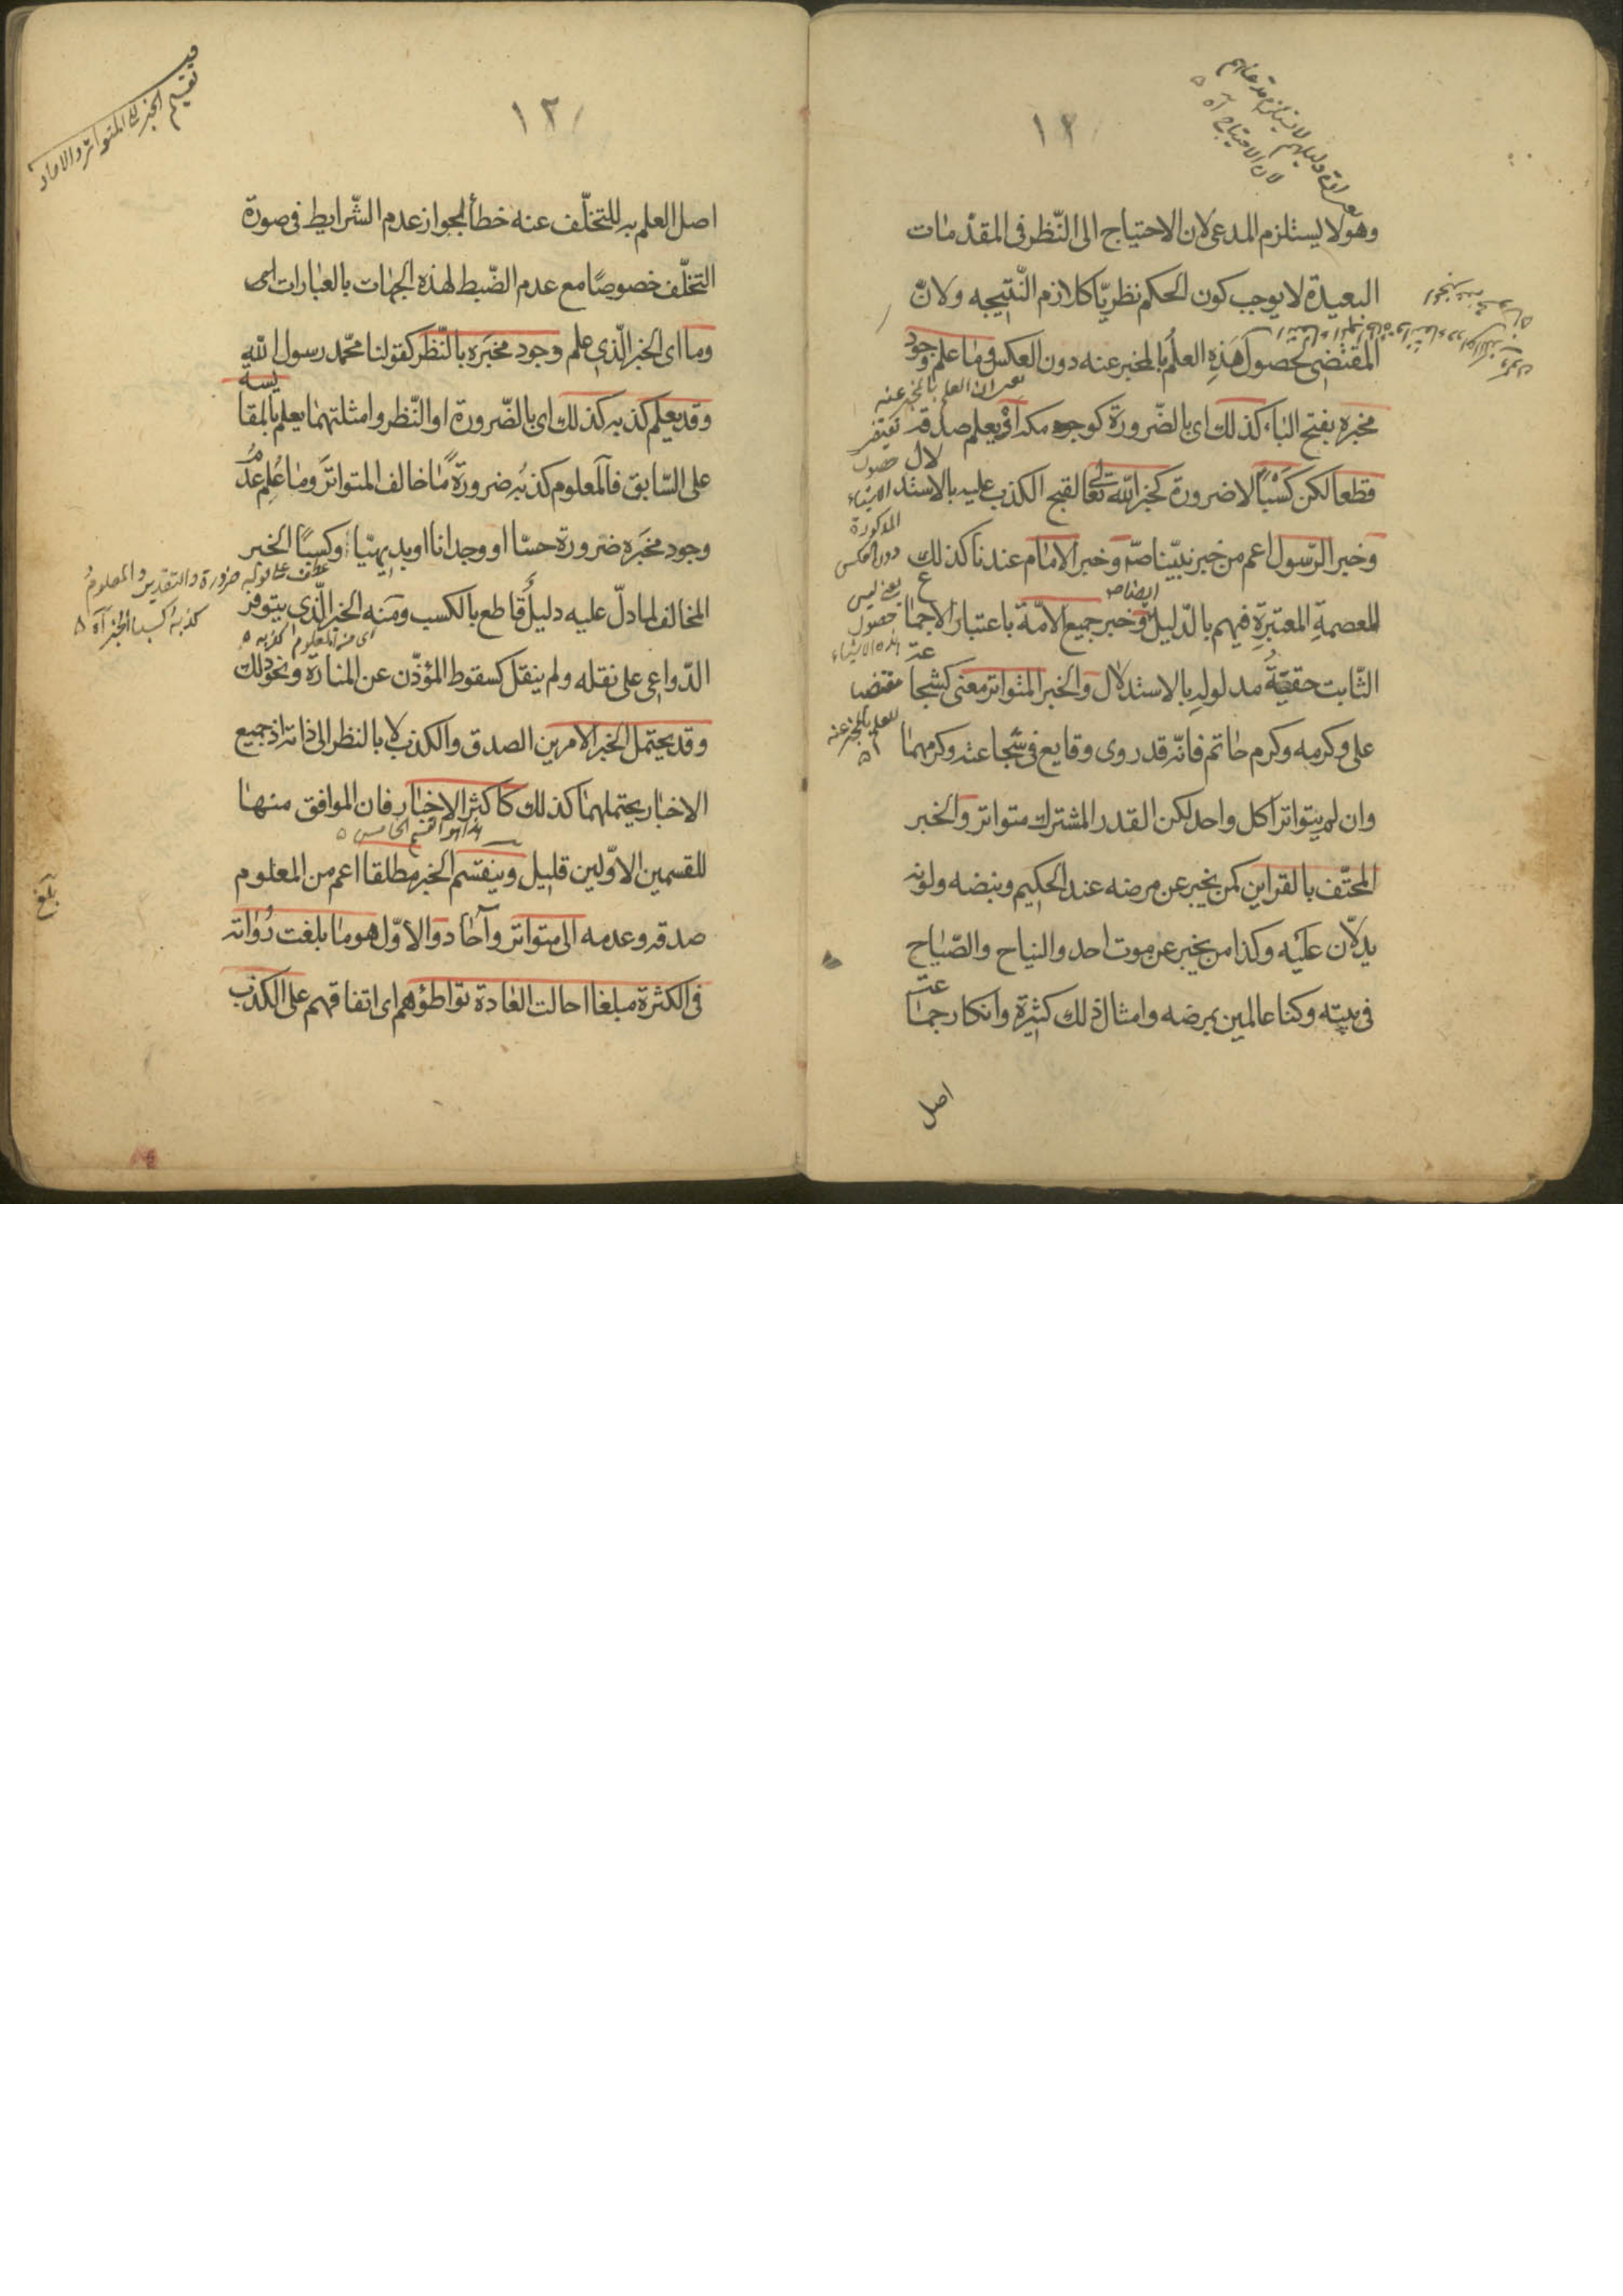 ١٢
وهو لا يستلزم المدعى لان الاحتياج الى النّظر فى المقدّمات
البعيدة لا يوجب كون الحكم نظريّا كلازم النّتيجه ولانّ
المقتضى لحصول هَذِهِ العلمُ بالمخبر عنه دون العكس وما علم وجود
مخبَره بفتح الباء كذلك اى بالضّرورة كوجود مكه اَوْ يعلم صدقه
قطعا لكن كَسْبًا لا ضرورة كخبر اللّه تعالى لقبح الكذب عليه بالاستدلال
وخبر الرّسول اعم من خبر نبيّنا صّ وخبر الامام عندنا كذلك
للعصمةِ المعتبَرةِ فيهم بالدّليل وخبر جميع الامّة باعتبار الاجماع
الثّابت حقيّة مدلولهِ بالاستدلال والخبر المتواتر معنى كشجاعة
على وكرمه وكرم حاتم فانّه قد روى وقايع فى شجاعته وكرمهما
وان لم يتواتر كل واحد لكن القدر المشترك متواتر والخبر
المحتّف بالقراين كمن يخبر عن مرضه عند الحكيم ونبضه ولونه
يدلّان عليه وكذا من يخبر عن موت احد والنياح والصّياح
فى بيته وكنا عالمين بمرضه وامثال ذلك كثيرة وانكار جماعة
اصل
تقسيم الخبر الى المتواتر والاحاد
١٢
اصل العلم به للتخلّف عنه خطأ لجواز عدم الشّرايط فى صورة
التخلّف خصوصًا مع عدم الضّبط لهذه الجهات بالعبارات
وما اى الخبر الّذى علم وجود مخبَره بالنّظر كقولنا محمّد رسول اللّه
وقد يعلم كذبه كذلك اى بالضّرورة او النّظر وامثلتهما يعلم بالمقايسه
على السّابق فالمعلوم كذبُه ضرورةً ما خالف المتواترَ وما عُلِم عدمُ
وجود مخبَره ضرورة حسّا او وجدانا او بديهيّا وكسبًا الخبر
عطف على قوله ضرورة والتقدير والمعلومُ
كذبه كسبا الخبر آه
المخالف لما دلّ عليه دليلٌ قاطع بالكسب ومنه الخبر الّذى يتوفر
اى من المعلوم كذبه
الدّواعى على نقله ولم ينقل كسقوط المؤذّن عن المنارة ونحو ذلك
وقد يحتمل الخبر الامرين الصدق والكذب لا بالنظر الى ذاته اذ جميع
الاخبار يحتملهما كذلك كاكثر الاخبار فان الموافق منها
هذا هو القسم الخامس
للقسمين الاوّلين قليل وينقسم الخبر مطلقا اعم من المعلوم
بلغ
صدقه وعدمه الى متواتر وآحاد والاوّل هو ما بلغت رُواته
فى الكثرة مبلغا احالت العادة تواطؤهم اى اتفاقهم على الكذب